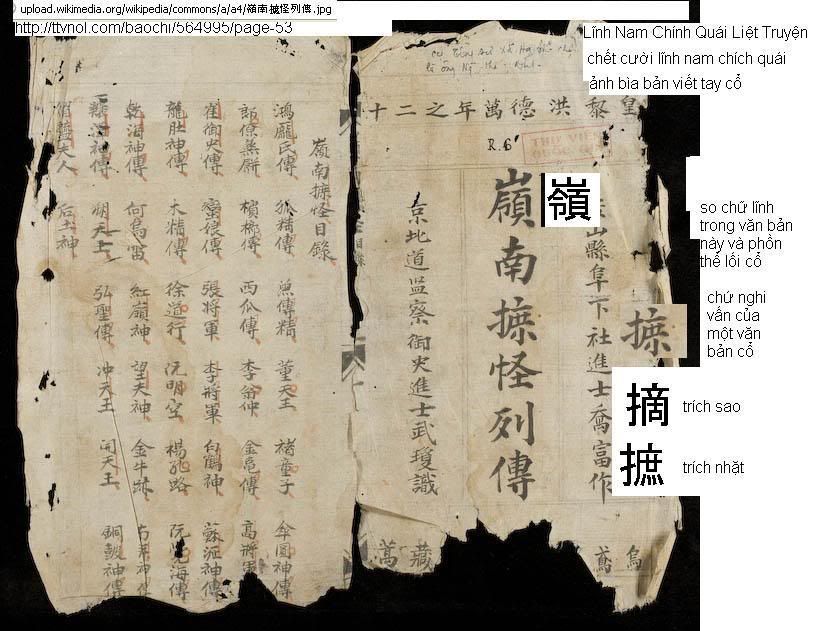 upload.wikimedia.org/wikipedia/commons/a/a4/嶺南摭怪列傳.jpg
http://ttvnol.com/baochi/564995/page-53
Lĩnh Nam Chính Quái Liệt Truyện
chết cười lĩnh nam chích quái
ảnh bìa bản viết tay cổ
皇黎洪德萬年之二十
R.6
THƯ VIỆN
山縣阜下社進士喬富作
嶺南摭怪列傳
京北道监察御史進士武瓊識
嶺
so chứ lĩnh
trong văn bản
này và phồn
thể lối cổ
摭
chứ nghi
vấn của
một văn
bản cổ
摘
trích sao
摭
trích nhặt
嶺南摭怪目錄
鴻厖氏傳
狐精傳
魚傳精
董天王
褚童子
傘圓神傳
檳榔傳
西瓜傳
李翁仲
金龜傳
高將軍
崔御史傳
蠻娘傳
張將軍
李將軍
白鶴神
蘇沥神傳
龍肚神傳
木精傳
徐道行
阮明空
楊孔路
乾海神傳
何烏雷
紅嶺神
望夫神
金牛跡
朔天王
弘聖傳
冲天王
開天王
銅鼓神傳
夫人
后土神
烏
鳶
藏
萬